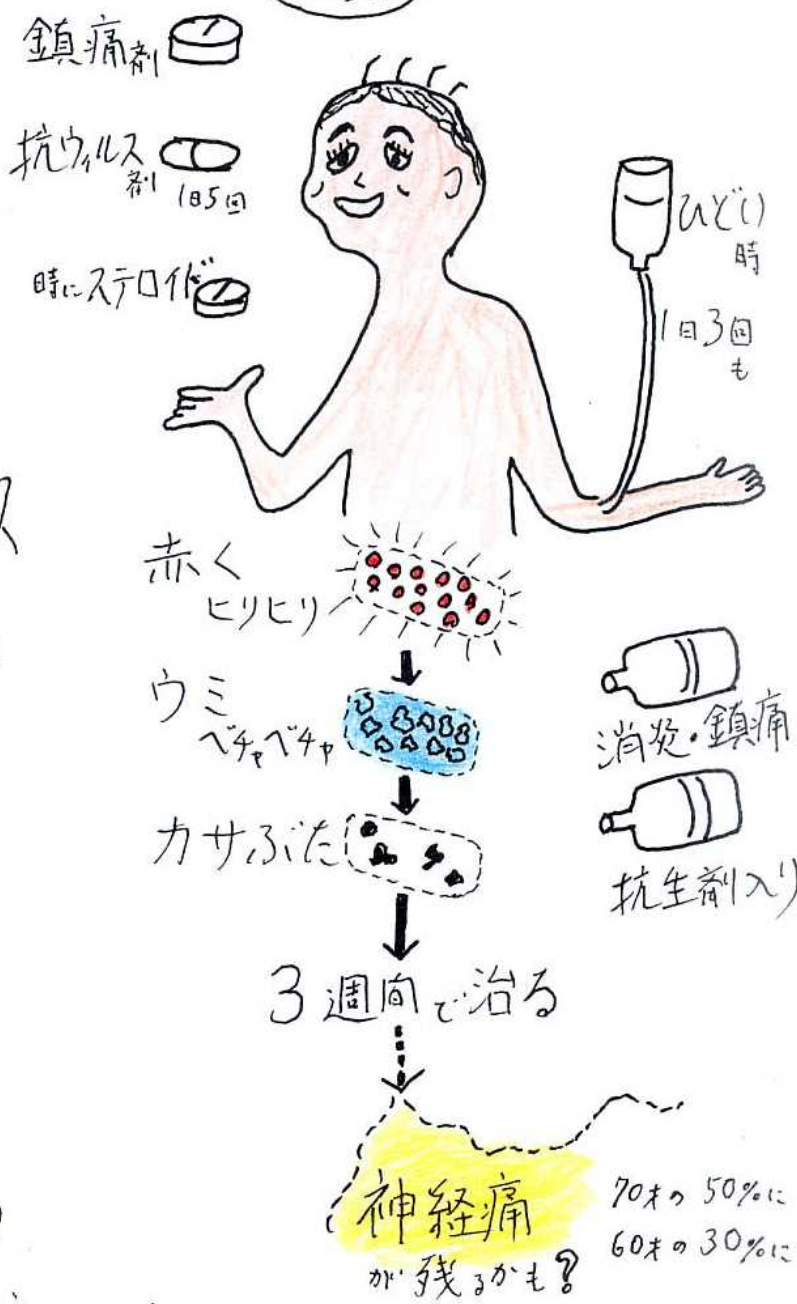 鎮痛剤
抗ウィルス剤
1日5回
時にステロイド
ひどい
時
1日3回
も
赤く
ヒリヒリ
ウミ
ベチャベチャ
カサぶた
消炎・鎮痛
抗生剤入り
3週間で治る
神経痛
が残るかも?
70才の50%に
60才の30%に